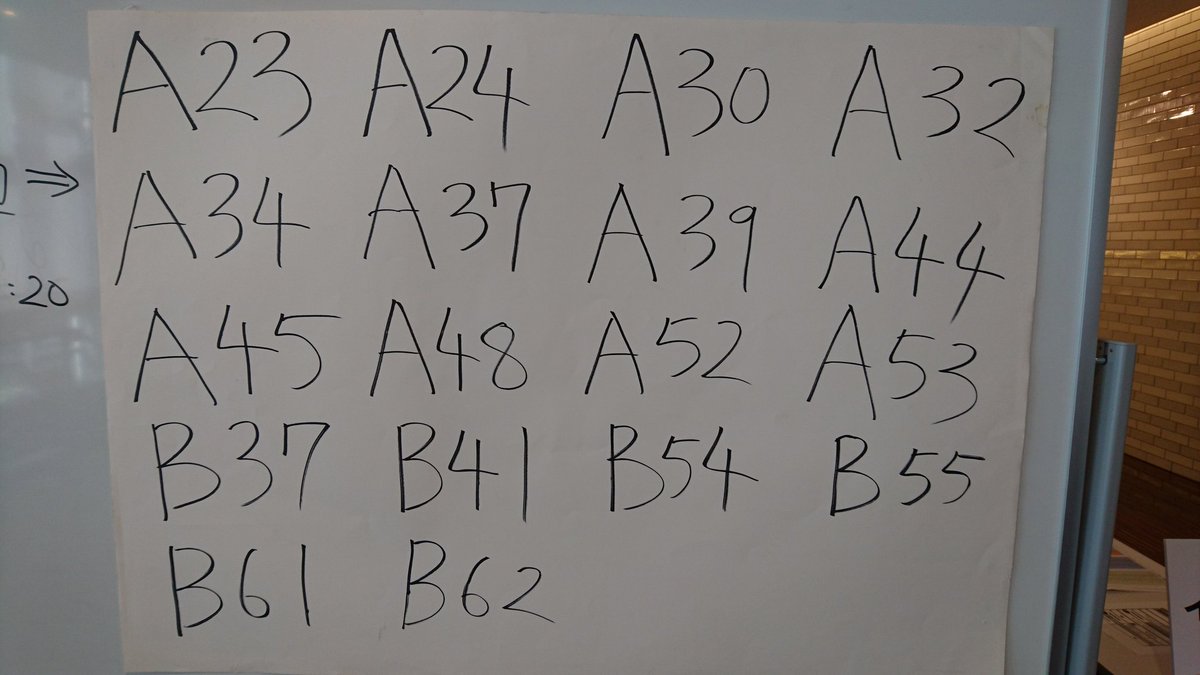 A23 A24 A30 A32
⇒
A34 A37 A39 A44
:20
A45 A48 A52 A53
B37 B41 B54 B55
B61 B62